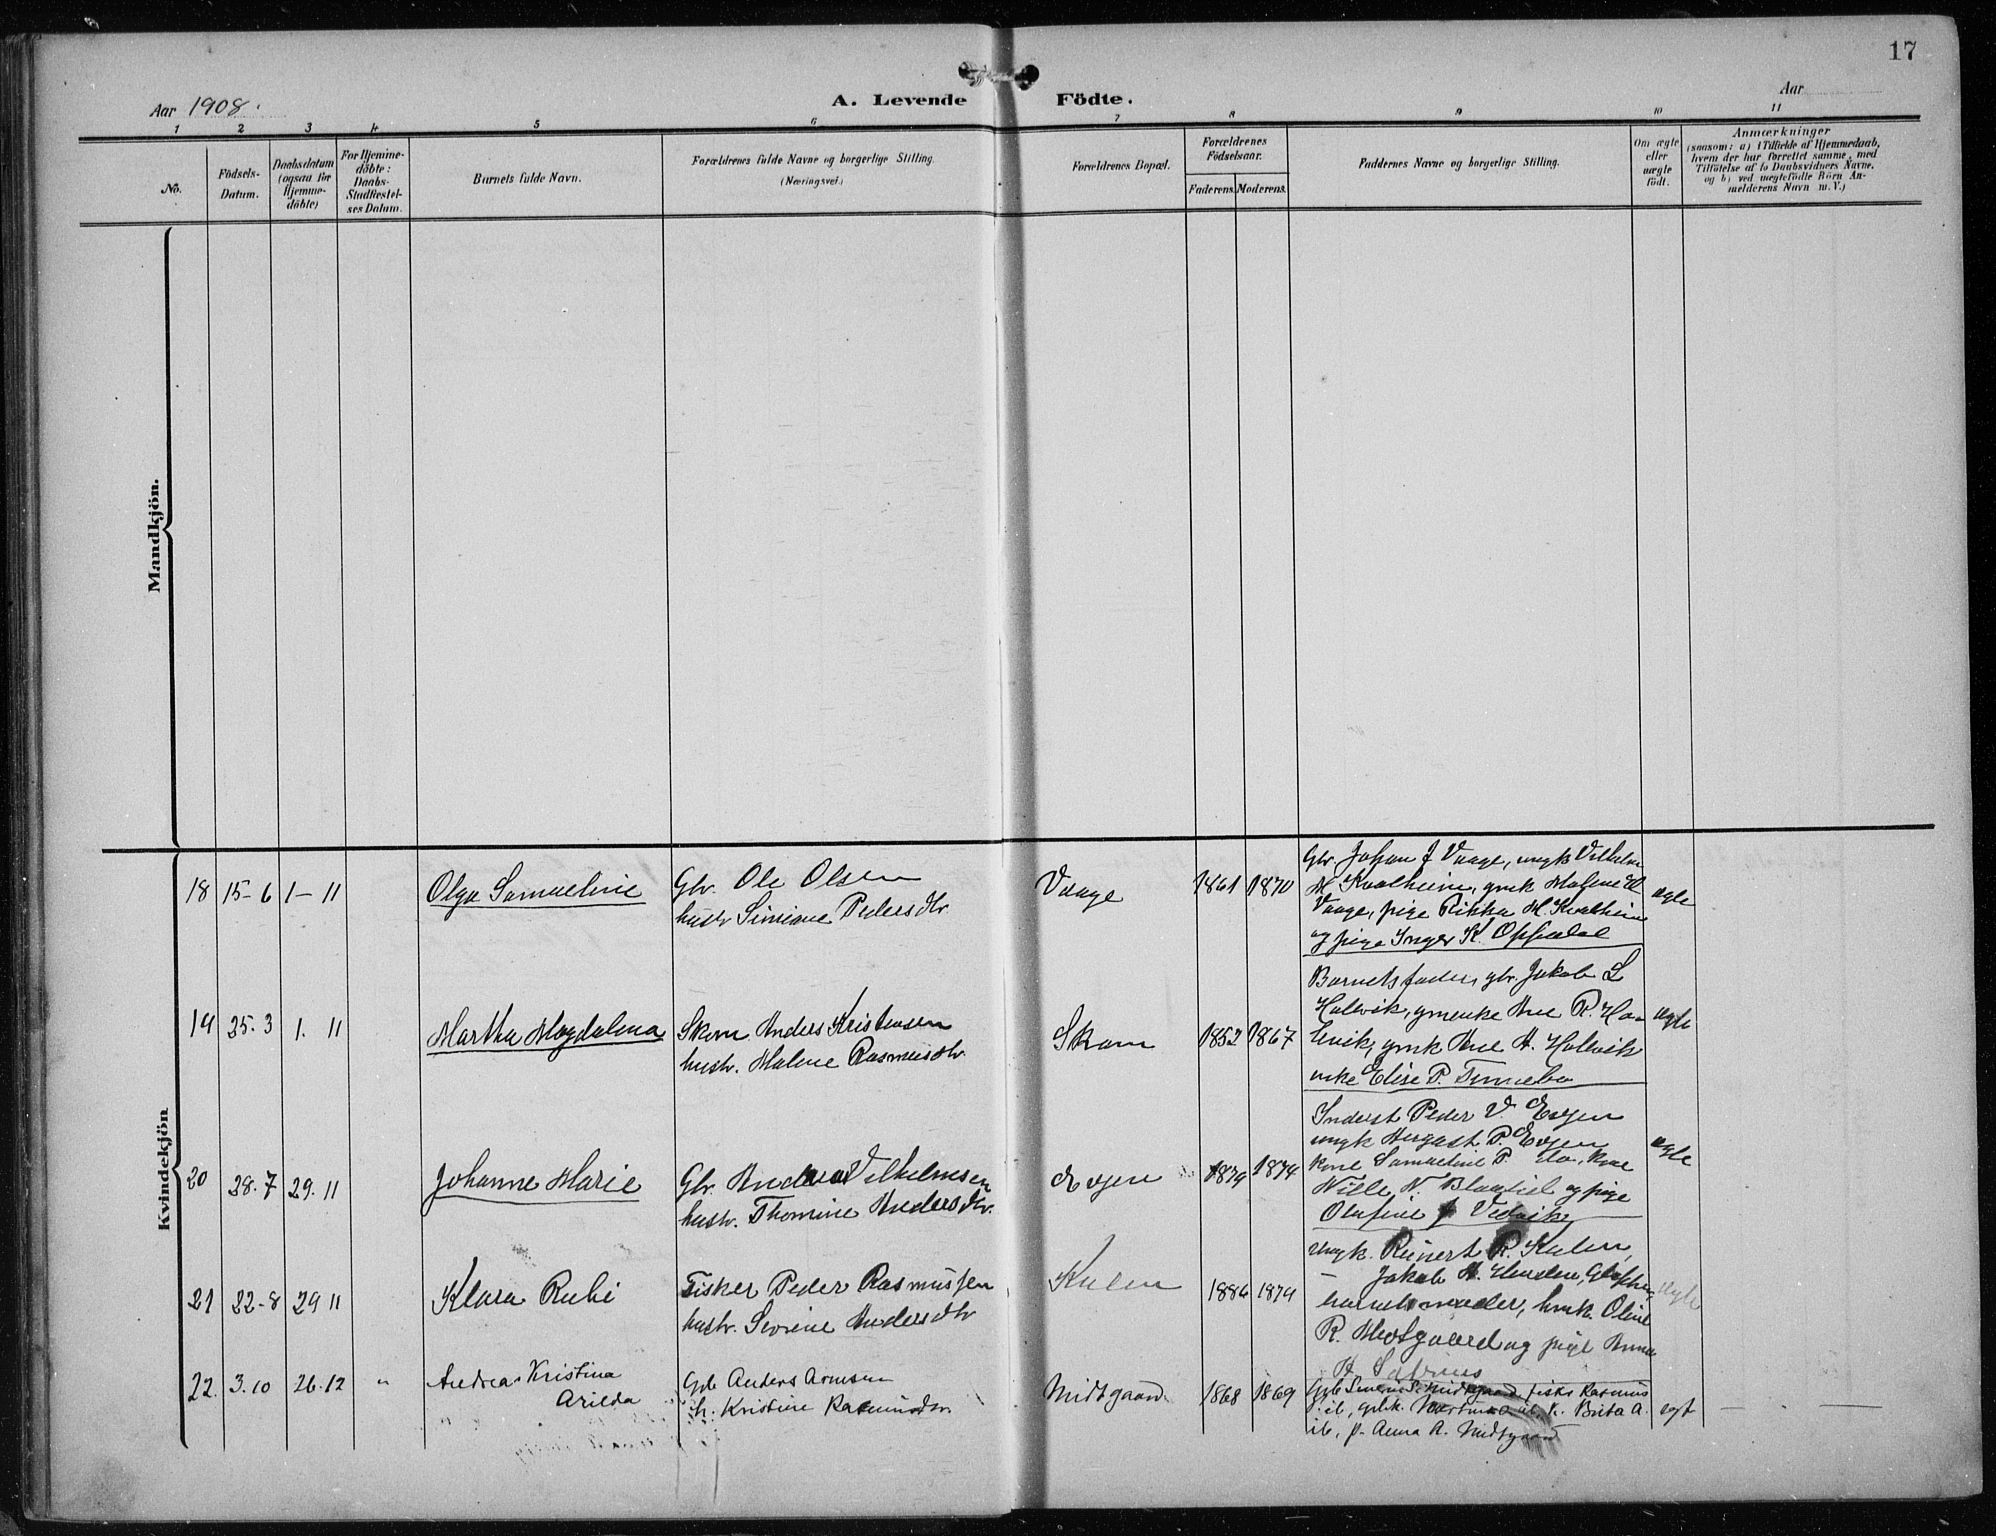 17
Aar 1908.
A. Levende Födte.
Aar
1 2 3 4 5 6 7 8 9 10 11
No.
Födsels-
Datum.
Daabsdatum
(ogsaa for
Hjemme-
döbte)
For Hjemme-
döbte:
Daabs-
Stadfæstel-
ses Datum.
Barnets fulde Navn.
Forældrenes fulde Navne og borgerlige Stilling.
(Næringsvei.)
Forældrenes Bopæl.
Forældrenes
Födselsaar.
Faderens. Moderens.
Faddernes Navne og borgerlige Stilling.
Om ægte
eller
uægte
födt.
Anmærkninger
(saasom: a) i Tilfælde af Hjemmedaab,
hvem der har forrettet samme, med
Tilföielse af to Daabsvidners Navne.
og b) ved uægtefödte Börn An-
melderens Navn m. V.)
Mandkjön.
Kvindekjön
18 15-6 1-11
Olga Samueline
Gbr. Ole Olsen
hustr. Simiane Pedersdtr
Vaage
1861 1870
Gbr. Johan J Vaage, ungk Vilhelm
M Kvalheim, gmk Malene
Vaage, pige Rikka M. Kvalheim
og pige Inger K. Oppedal
ægte
19 25.3 1. 11
Martha Magdalena
Skom Anders Kristensen
hustr. Malene Rasmusdtr.
Skram
1852 1867
Barnets fader, gbr. Jakob L
Halvik, gmenke Ane R. Ha-
lvik, gmk Ane A. Halvik
enke Elise P.
ægte
20 28.7 29.11
Johanne Marie
Gbr. Andreas Vilhelmsen
hustr. Thomine Andersdtr.
Evjen
1879 1874
Inderst Peder V. Evjen
ungk P. Evjen
kone Samueline P. do, kone
Wille N. og pige
Olufine J Vedvik
ægte
21 22-8 29 11
Klara Rubi
Fisker Peder Rasmussen
hustr. Severine Andersdtr
Kulen
1886 1874
Ungk. Reinert R. Kulen,
— Jakob A.
barnets moder, hmk. Oline
R. Midtgaard og pige Anna
A.
ægte
22 3.10 26.12 "
Andrea Kristina
Arilda
Gbr Anders Arnesen
h. Kristine Rasmusdtr.
Midtgaard
1868 1869
Gbr S. Midtgaard, fisker Rasmus
ib, gbk. ib, k. Brita A.
ib, p. Anna A. Midtgaard
egt